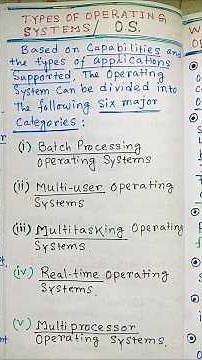 TYPES OF OPERATING
SYSTEMS / O.S.
Based on Capabilities and
the types of applications
Supported, The Operating
System can be divided into
The following six major
Categories :
(i) Batch Processing
Operating Systems
(ii) Multi-user Operating
Systems
(iii) Multitasking Operating
Systems
(iv) Real-time Operating
Systems.
(v) Multiprocessor
Operating Systems.